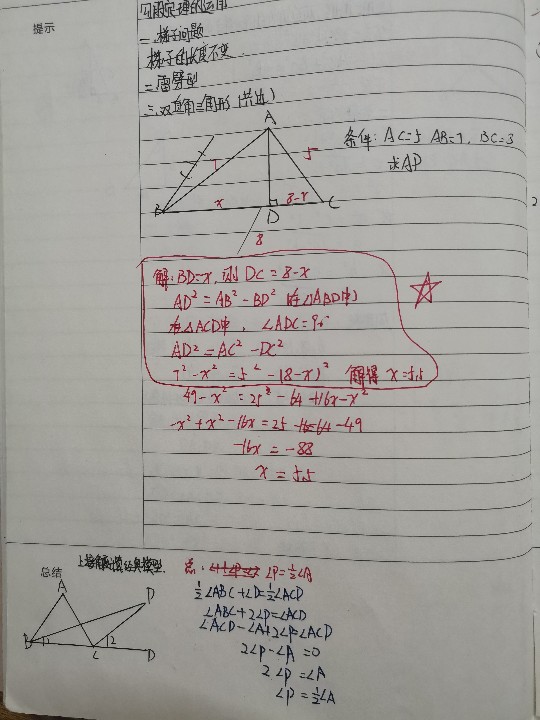 提示
勾股定理的运用
一.梯子问题
梯子的长度不变
二.雷劈型
三.双直角三角形(共边)
A
条件: AC=5 AB=7, BC=3
求AD
7
5
x
8-x
B
D
C
8
解:BD=x,则DC=8-x
AD²=AB²-BD² (在△ABD中)
在△ACD中, ∠ADC=90
AD²=AC²-DC²
7²-x²=5²-(8-x)² 解得 x=5.5
49-x²=25²-64+16x-x²
-x²+x²-16x=25-64-49
-16x=-88
x=5.5
总结
A
P
B
1
C
2
D
总: ∠P=½∠A
½∠ABC+∠D=½∠ACD
∠ABC+2∠D=∠ACD
∠ACD-∠A+2∠P=∠ACD
2∠P-∠A=0
2∠P=∠A
∠P=½∠A